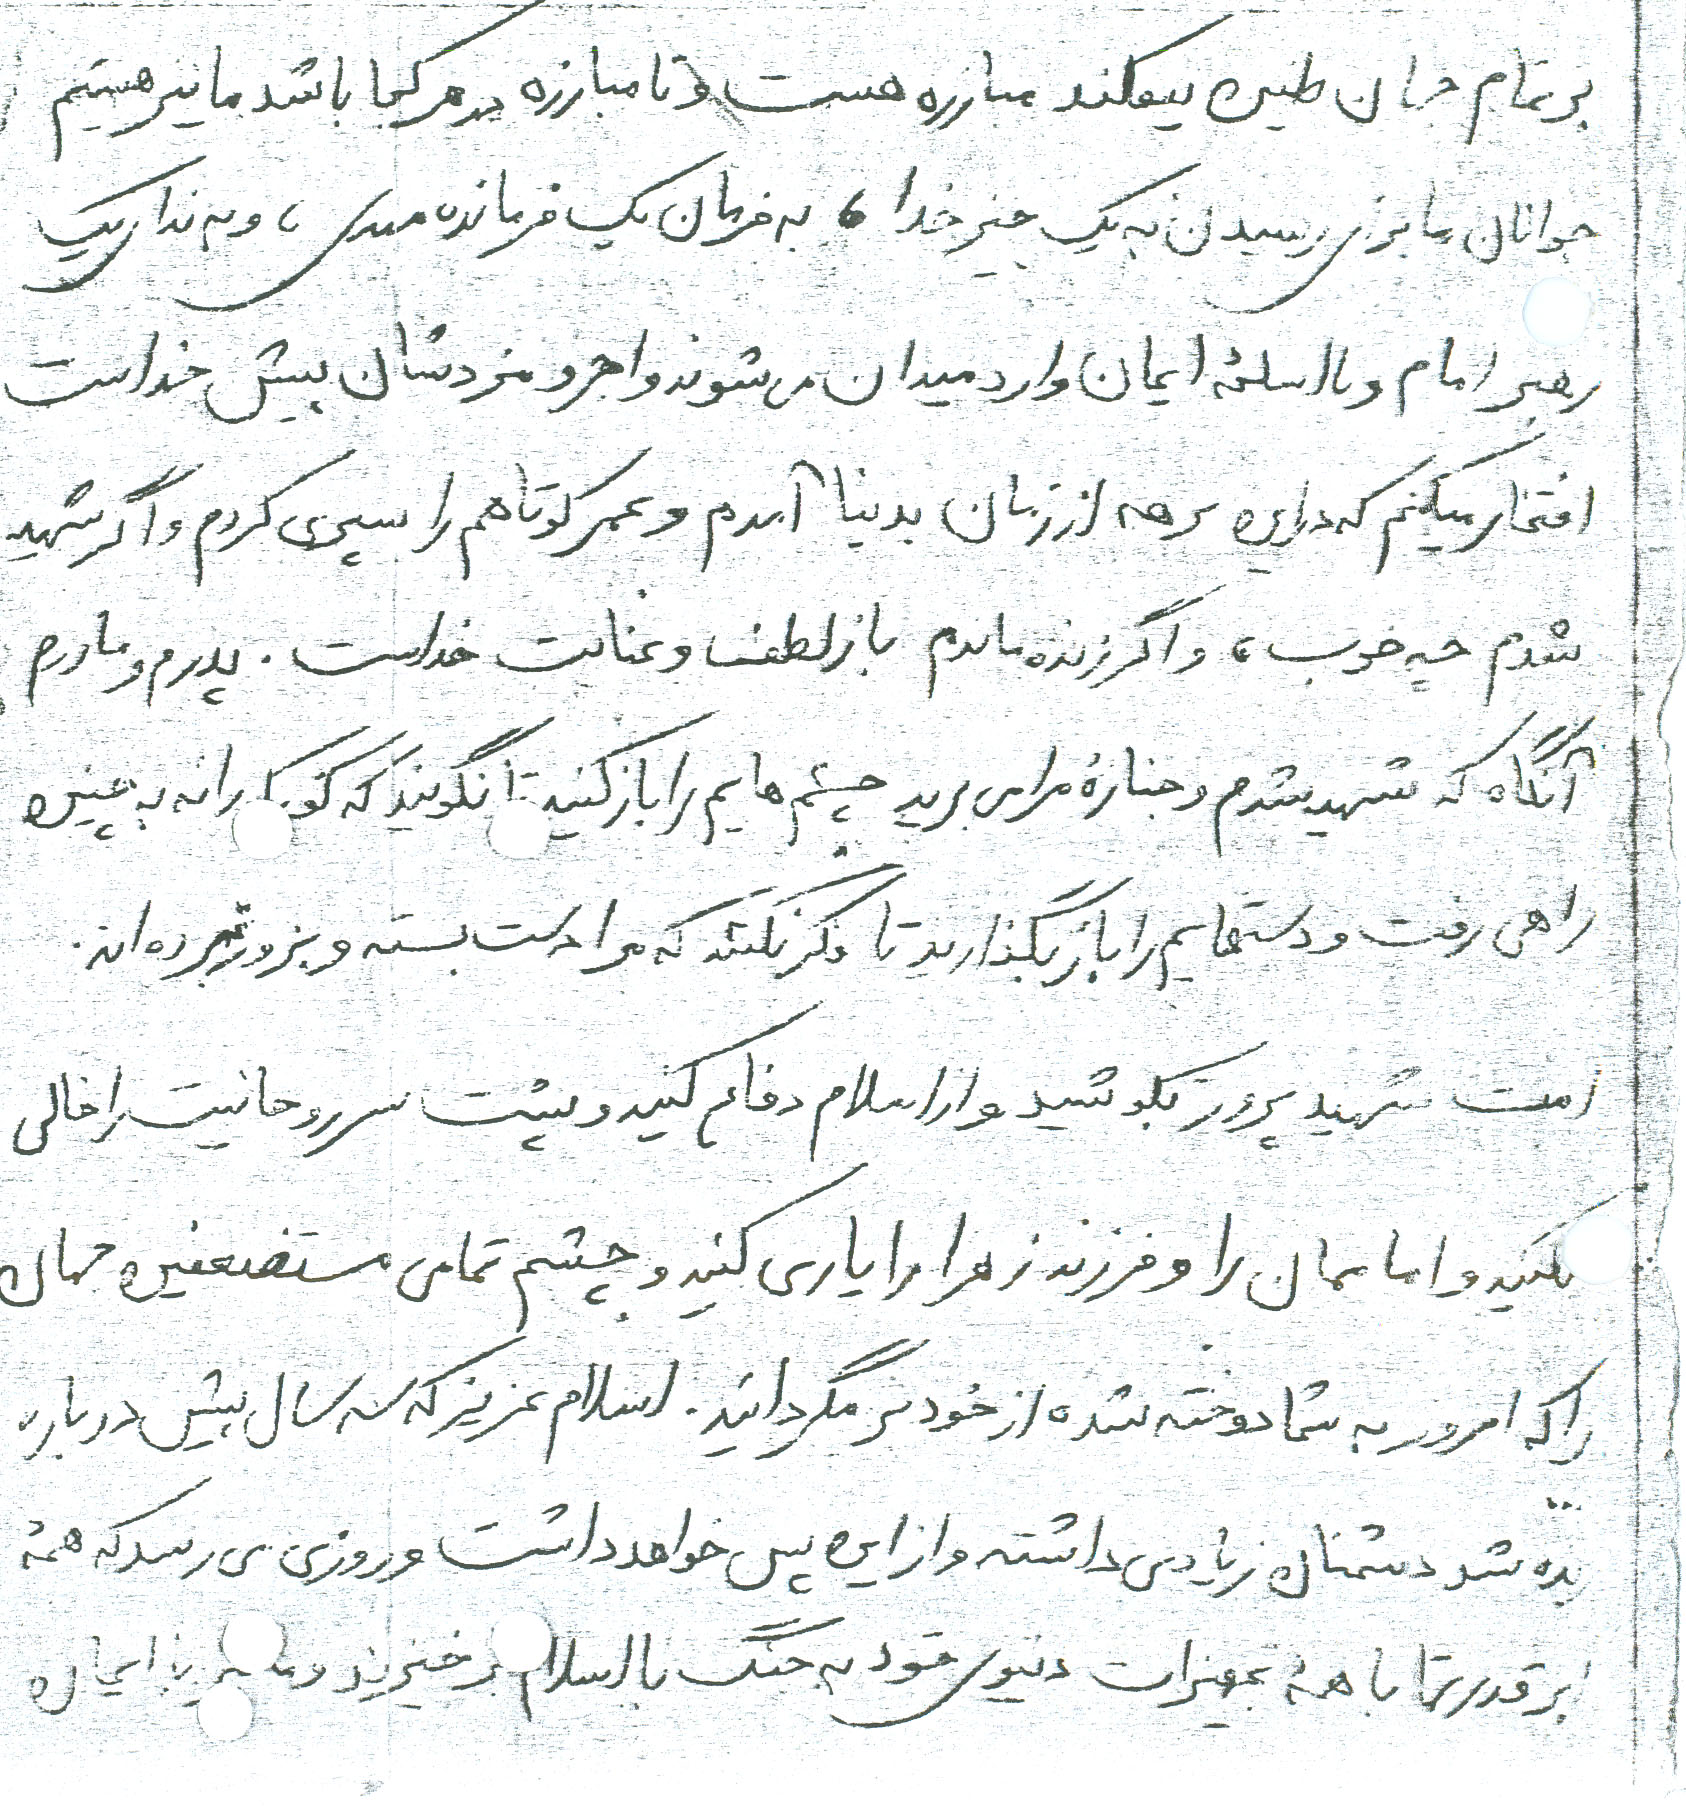 بر تمام جهان طنین بیفکند مبارزه هست و تا مبارزه در هر کجا باشد ما نیز هستیم
جوانان ما برای رسیدن به یک چیز خدا ، به فرمان یک فرمانده مهدی ، و به ندای یک
رهبر امام و با اسلحه ایمان وارد میدان می شوند و اجر و مزدشان پیش خداست
افتخار میکنم که در این برهه از زمان بدنیا آمدم و عمر کوتاهم را سپری کردم و اگر شهید
شدم چه خوب ، و اگر زنده ماندم باز لطف و عنایت خداست . پدرم و مادرم
آنگاه که شهید شدم و جنازهٔ مرا می برید چشم هایم را باز کنید تا نگویند که کورکورانه به چنین
راهی رفت و دستهایم را باز بگذارید تا فکر نکنند که مرا دست بسته و بزور برده اند.
امت شهید پرور بکوشید و از اسلام دفاع کنید و پشت سر روحانیت را خالی
نکنید و امامان را و فرزند زهرا را یاری کنید و چشم تمامی مستضعفین جهان
را که امروز به شما دوخته شده از خود بر مگردانید . اسلام عزیز که سه سال پیش دوباره
زنده شد دشمنان زیادی داشته و از این پس خواهد داشت و روزی می رسد که همهٔ
ابر قدرتها با همهٔ تجهیزات دنیوی خود به جنگ با اسلام بر خیزند و ما نیز با ایمان